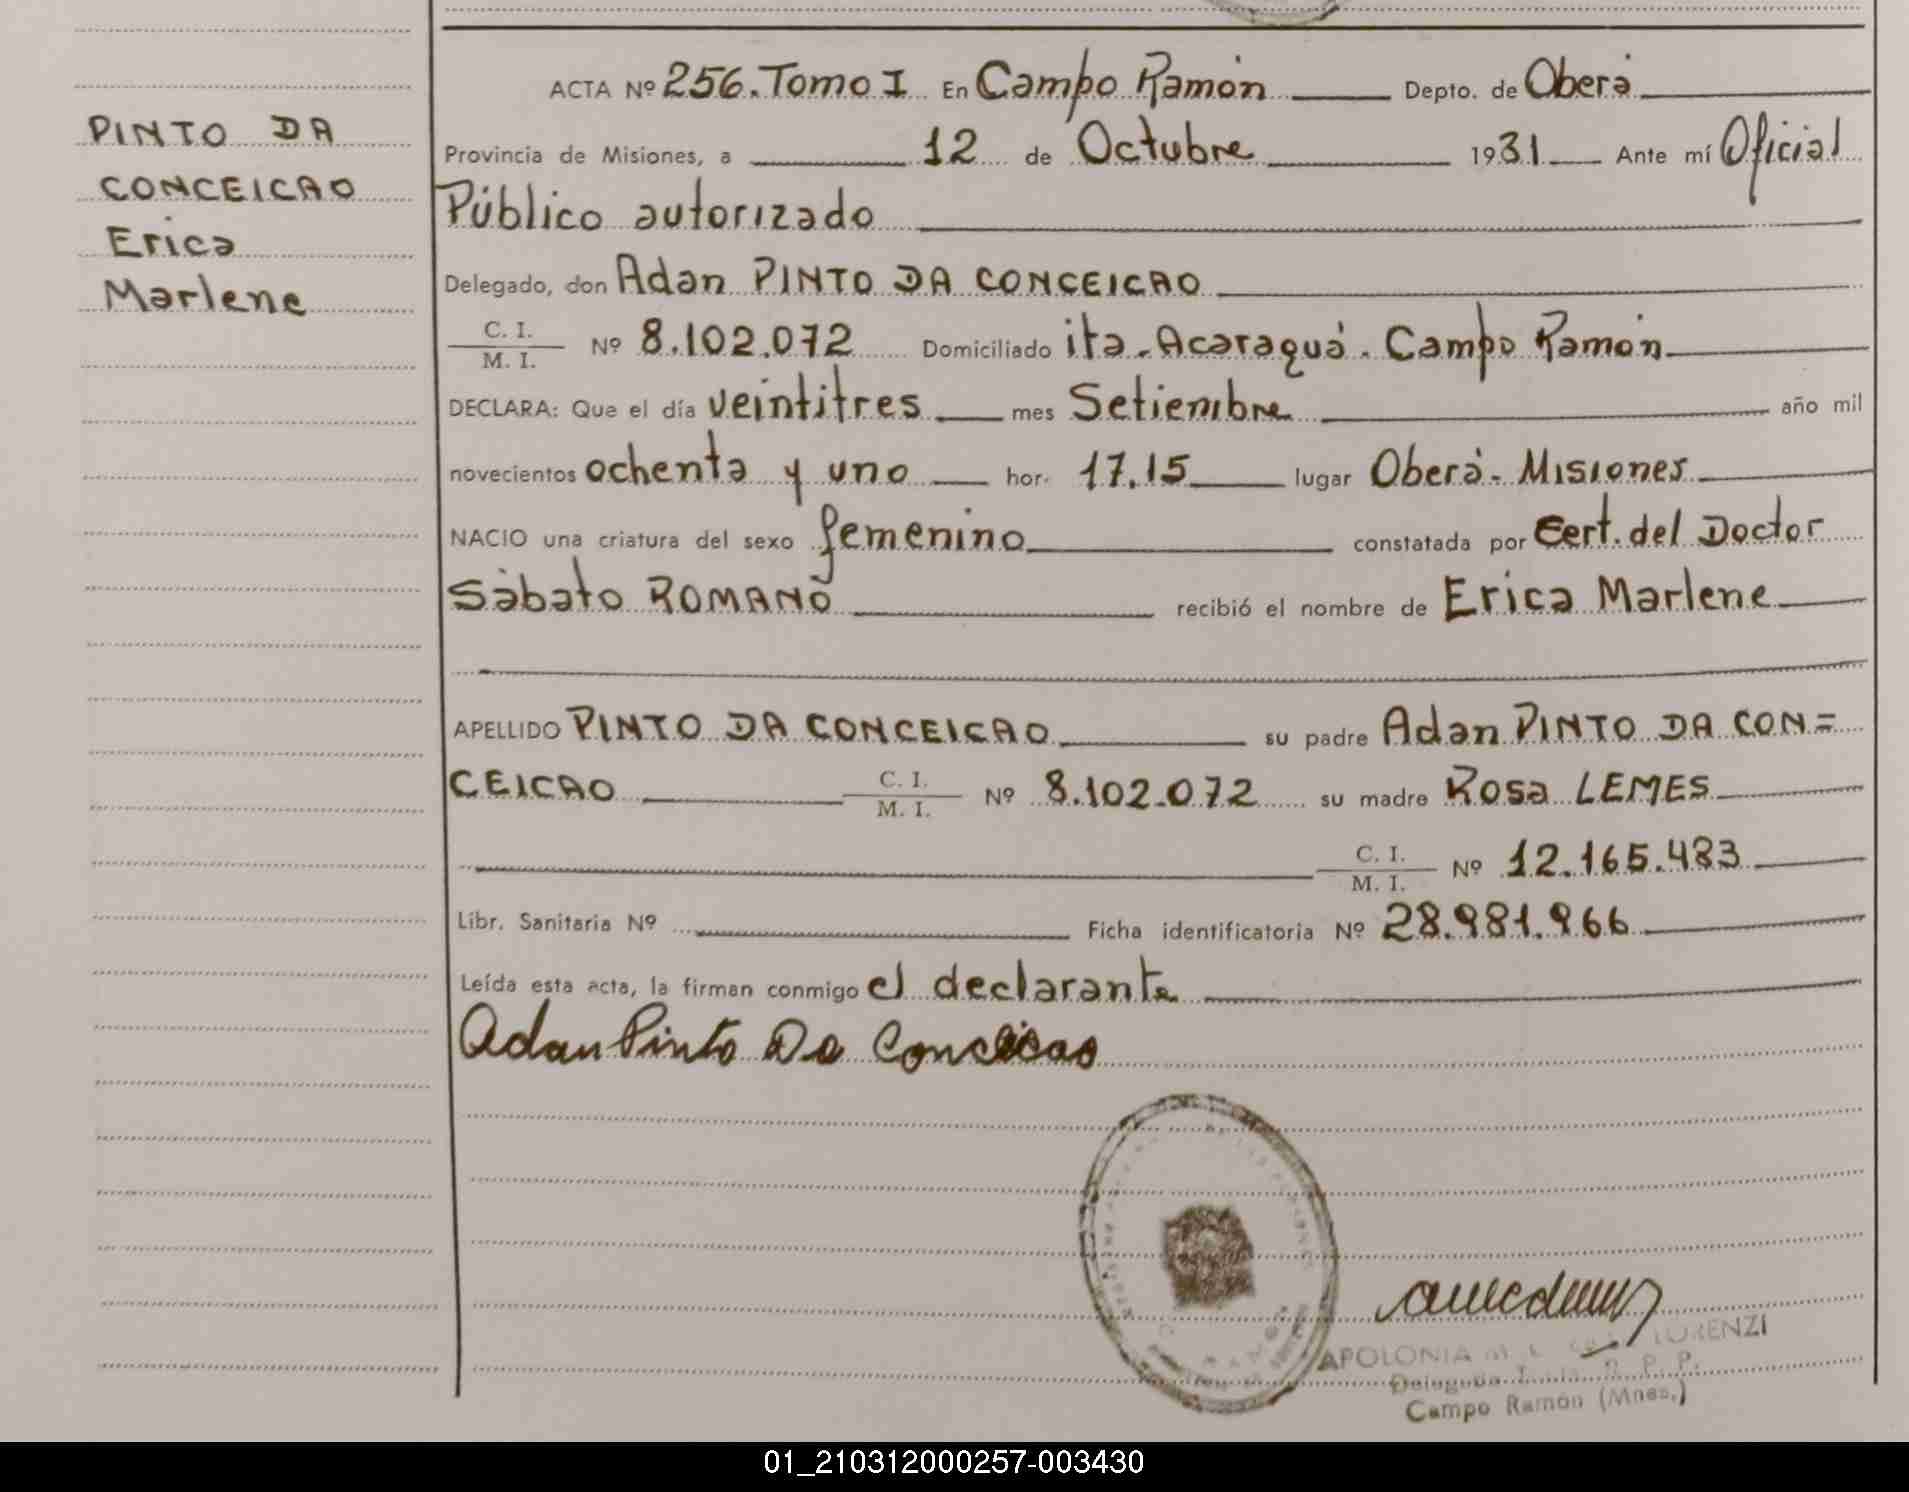 PINTO DA
CONCEICAO
Erica
Marlene
ACTA Nº 256. Tomo I En Campo Ramón Depto. de Oberá
Provincia de Misiones, a 12 de Octubre 1931 Ante mí Oficial
Público autorizado
Delegado, don Adan PINTO DA CONCEICAO
C. I.
M. I. Nº 8.102.072 Domiciliado ita-Acaraguá. Campo Ramón
DECLARA: Que el día veintitres mes Setiembre año mil
novecientos ochenta y uno hor. 17.15 lugar Oberá- Misiones
NACIO una criatura del sexo femenino constatada por Cert. del Doctor
Sábato ROMANO recibió el nombre de Erica Marlene
APELLIDO PINTO DA CONCEICAO su padre Adan PINTO DA CON=
CEICAO C. I.
M. I. Nº 8.102.072 su madre Rosa LEMES
C. I.
M. I. Nº 12.165.483
Libr. Sanitaria Nº Ficha identificatoria Nº 28.981.966
Leída esta acta, la firman conmigo el declarante
Adan Pinto Da Conceicao
APOLONIA LORENZI
Delegada R. P. P.
Campo Ramón (Mnes.)
01_210312000257-003430